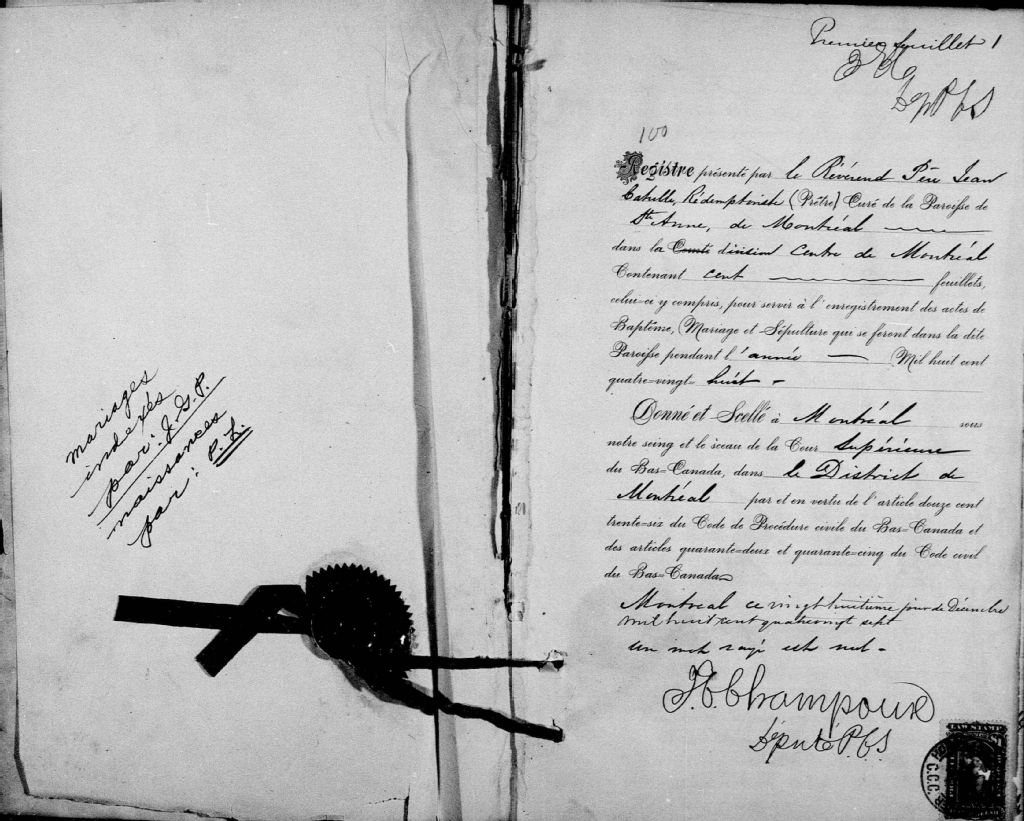 mariages
indexés
par: J. G. P.
naissances
par: P. L.
Premier feuillet 1
Dép P.C.S
100
Registre présenté par le Révérend Père Jean
Catulle, Rédemptoriste (Prêtre) Curé de la Paroisse de
Ste Anne, de Montréal
dans la Comté division Centre de Montréal
Contenant cent feuillets,
celui-ci y compris, pour servir à l'enregistrement des actes de
Baptême, Mariage et Sépulture qui se feront dans la dite
Paroisse pendant l'année Mil huit cent
quatre-vingt- huit -
Donné et Scellé à Montréal sous
notre seing et le sceau de la Cour Supérieure
du Bas-Canada, dans le District de
Montréal par et en vertu de l'article douze cent
trente-six du Code de Procédure civile du Bas-Canada et
des articles quarante-deux et quarante-cinq du Code civil
du Bas-Canada
Montréal ce vingt huitième jour de Décembre
mil huit cent quatrevingt sept
Un mot rayé est nul -
Champoux
Député P.C.S.
LAW STAMP
C.C.C.